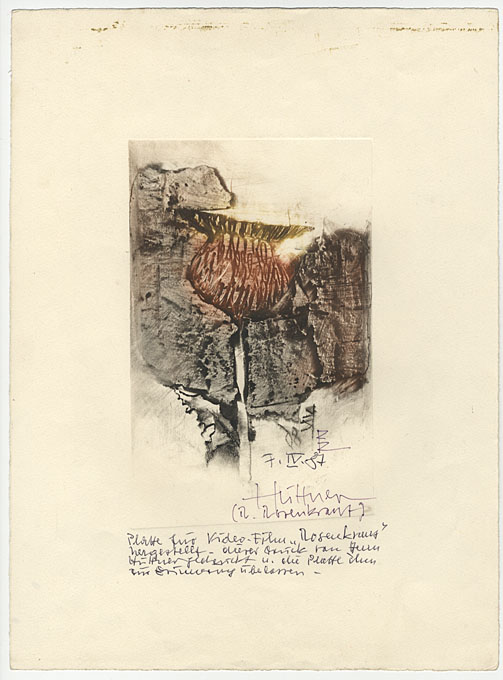 7. IV. 87
Hüttner
(R. Rosenkranz)
Platte für Video-Film „Rosenkranz"
hergestellt - dieser Druck von Herrn
Hüttner gedruckt u. die Platte ihm
zur Erinnerung überlassen -